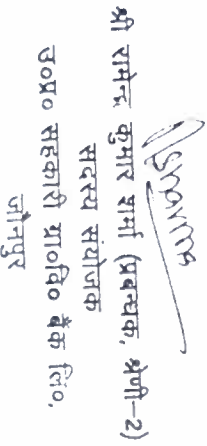 Rsharma
श्री रामेन्द्र कुमार शर्मा (प्रबन्धक, श्रेणी-2)
सदस्य संयोजक
उ०प्र० सहकारी ग्रा०वि० बैंक लि०,
जौनपुर